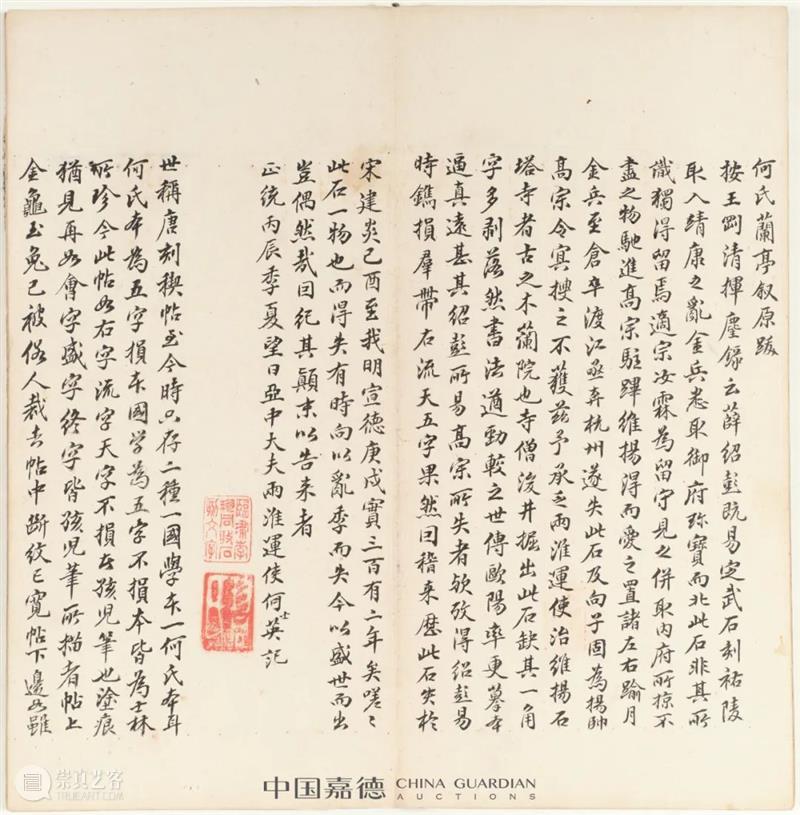 何氏蘭亭叙原跋
按王剛清揮麈錄云薛紹彭既易定武石刻祐陵
取入靖康之亂金兵悉取御府珍寶而北此石非其所
識獨得留焉適宗汝霖為留守見之併取內府所掠不
盡之物馳進高宗駐蹕維揚得而愛之置諸左右踰月
金兵至倉卒渡江丞弃杭州遂失此石及向子固為揚帥
高宗令冥搜之不獲茲予承乏兩淮運使治維揚石
塔寺者古之木蘭院也寺僧浚井掘出此石缺其一角
字多剥落然書法遒勁較之世傳歐陽率更摹本
逼真遠甚其紹彭所易高宗所失者欤攷得紹彭易
時鐫損羣帶右流天五字果然因稽来歷此石失於
宋建炎己酉至我明宣德庚戌實三百有二年矣嗟〻
此石一物也而得失有時向以亂季而失今以盛世而出
豈偶然哉因紀其顛末以告来者
正統丙辰季夏望日亞中大夫兩淮運使何士英記
世稱唐刻稧帖至今時只存二種一國學本一何氏本耳
何氏本為五字損本國學為五字不損本皆為士林
所珍今此帖如右字流字天字不損本孩児筆也塗痕
猶見再如會字盛字終字皆孩児筆所描者帖上
金龜玉兔已被俗人裁去帖中斷紋已寬帖下邊如雖
中国嘉德 CHINA GUARDIAN
AUCTIONS
崇真艺客
TRUEART.COM